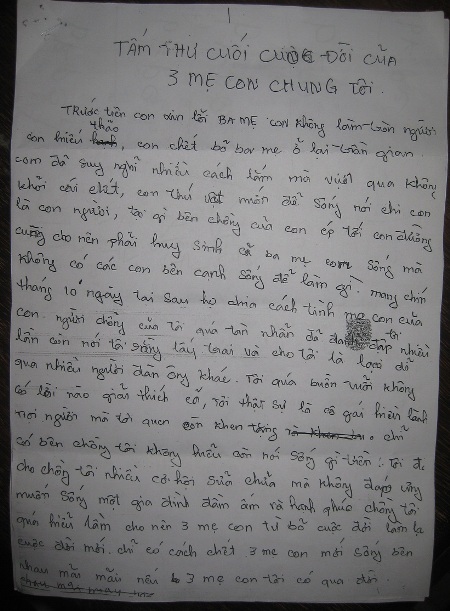 1
TẤM THƯ CUỐI CUỘC ĐỜI CỦA
3 MẸ CON CHUNG TÔI.
TRƯớc tiên con xin lỗi BA MẸ con không làm tròn người
con hiếu thảo, con chết bỏ ba mẹ ở lại trần gian.
con đã suy nghĩ nhiều cách lắm mà vượt qua không
khỏi cái chết, con thú vật muốn để sống nói chi con
là con người, tại gì bên chồng của con ép tới con đường
cùng cho nên phải huy sinh cả ba mẹ con sống mà
không có các con bên cạnh sống để làm gì. mang chín
tháng 10 ngày tại sau họ chia cách tình mẹ con của
con. người chồng của tôi quá tàn nhẫn đã đánh đập tôi nhiều
lần còn nói tôi sống lấy trai và cho tôi là loại đỗ
qua nhiều người đàn ông khác. Tôi quá buồn vười không
có lời nào giải thích cả, tôi thật sự là cô gái hiền lành
nơi người mà tôi quen còn khen tặng chỉ
có bên chồng tôi không hiểu còn nói sống gì tiền. Tôi đã
cho chồng tôi nhiều cơ hội sửa chữa mà không đáp ứng
muốn sống một gia đình đầm ấm và hạnh phúc chồng tôi
quá hiểu lầm cho nên 3 mẹ con từ bỏ cuộc đời làm lại
cuộc đời mới. chỉ có cách chết 3 mẹ con mới sống bên
nhau mãi mãi nếu 3 mẹ con tôi có qua đời